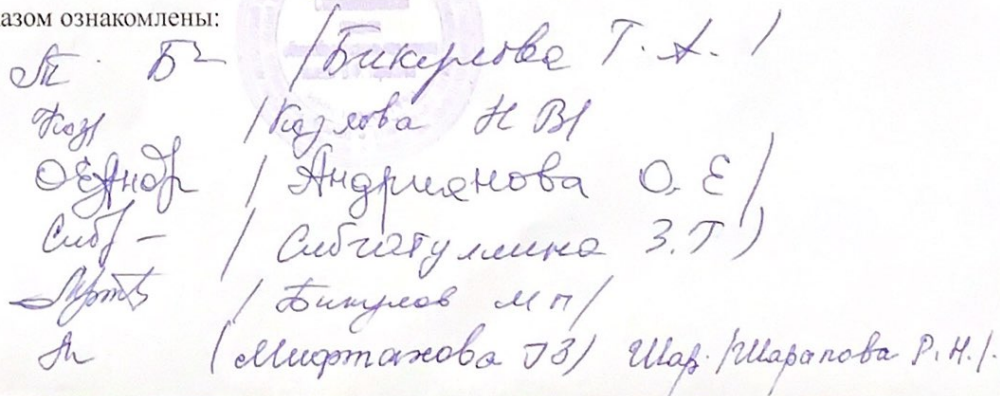 азом ознакомлены:
/Бикулова Т. А. /
Коз /Козлова Н В/
ОЕАндр / Андриянова О. Е/
Сибг - / Сибгатуллина З.Т)
/ Бикулов М П/
(Мифтахова Г З) Шар. /Шарапова Р.Н./.